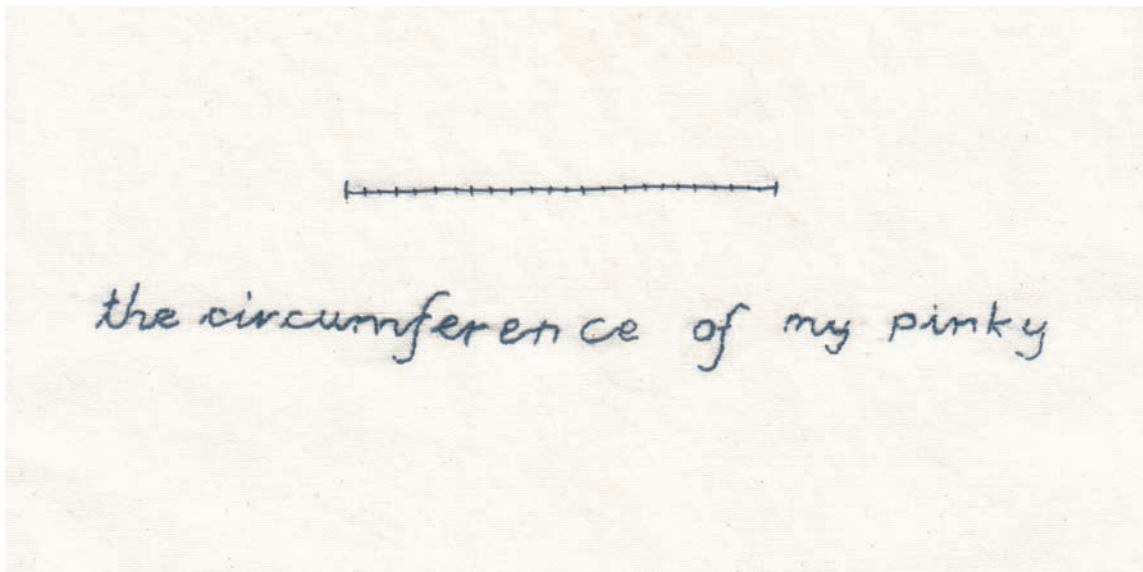 the circumference of my pinky